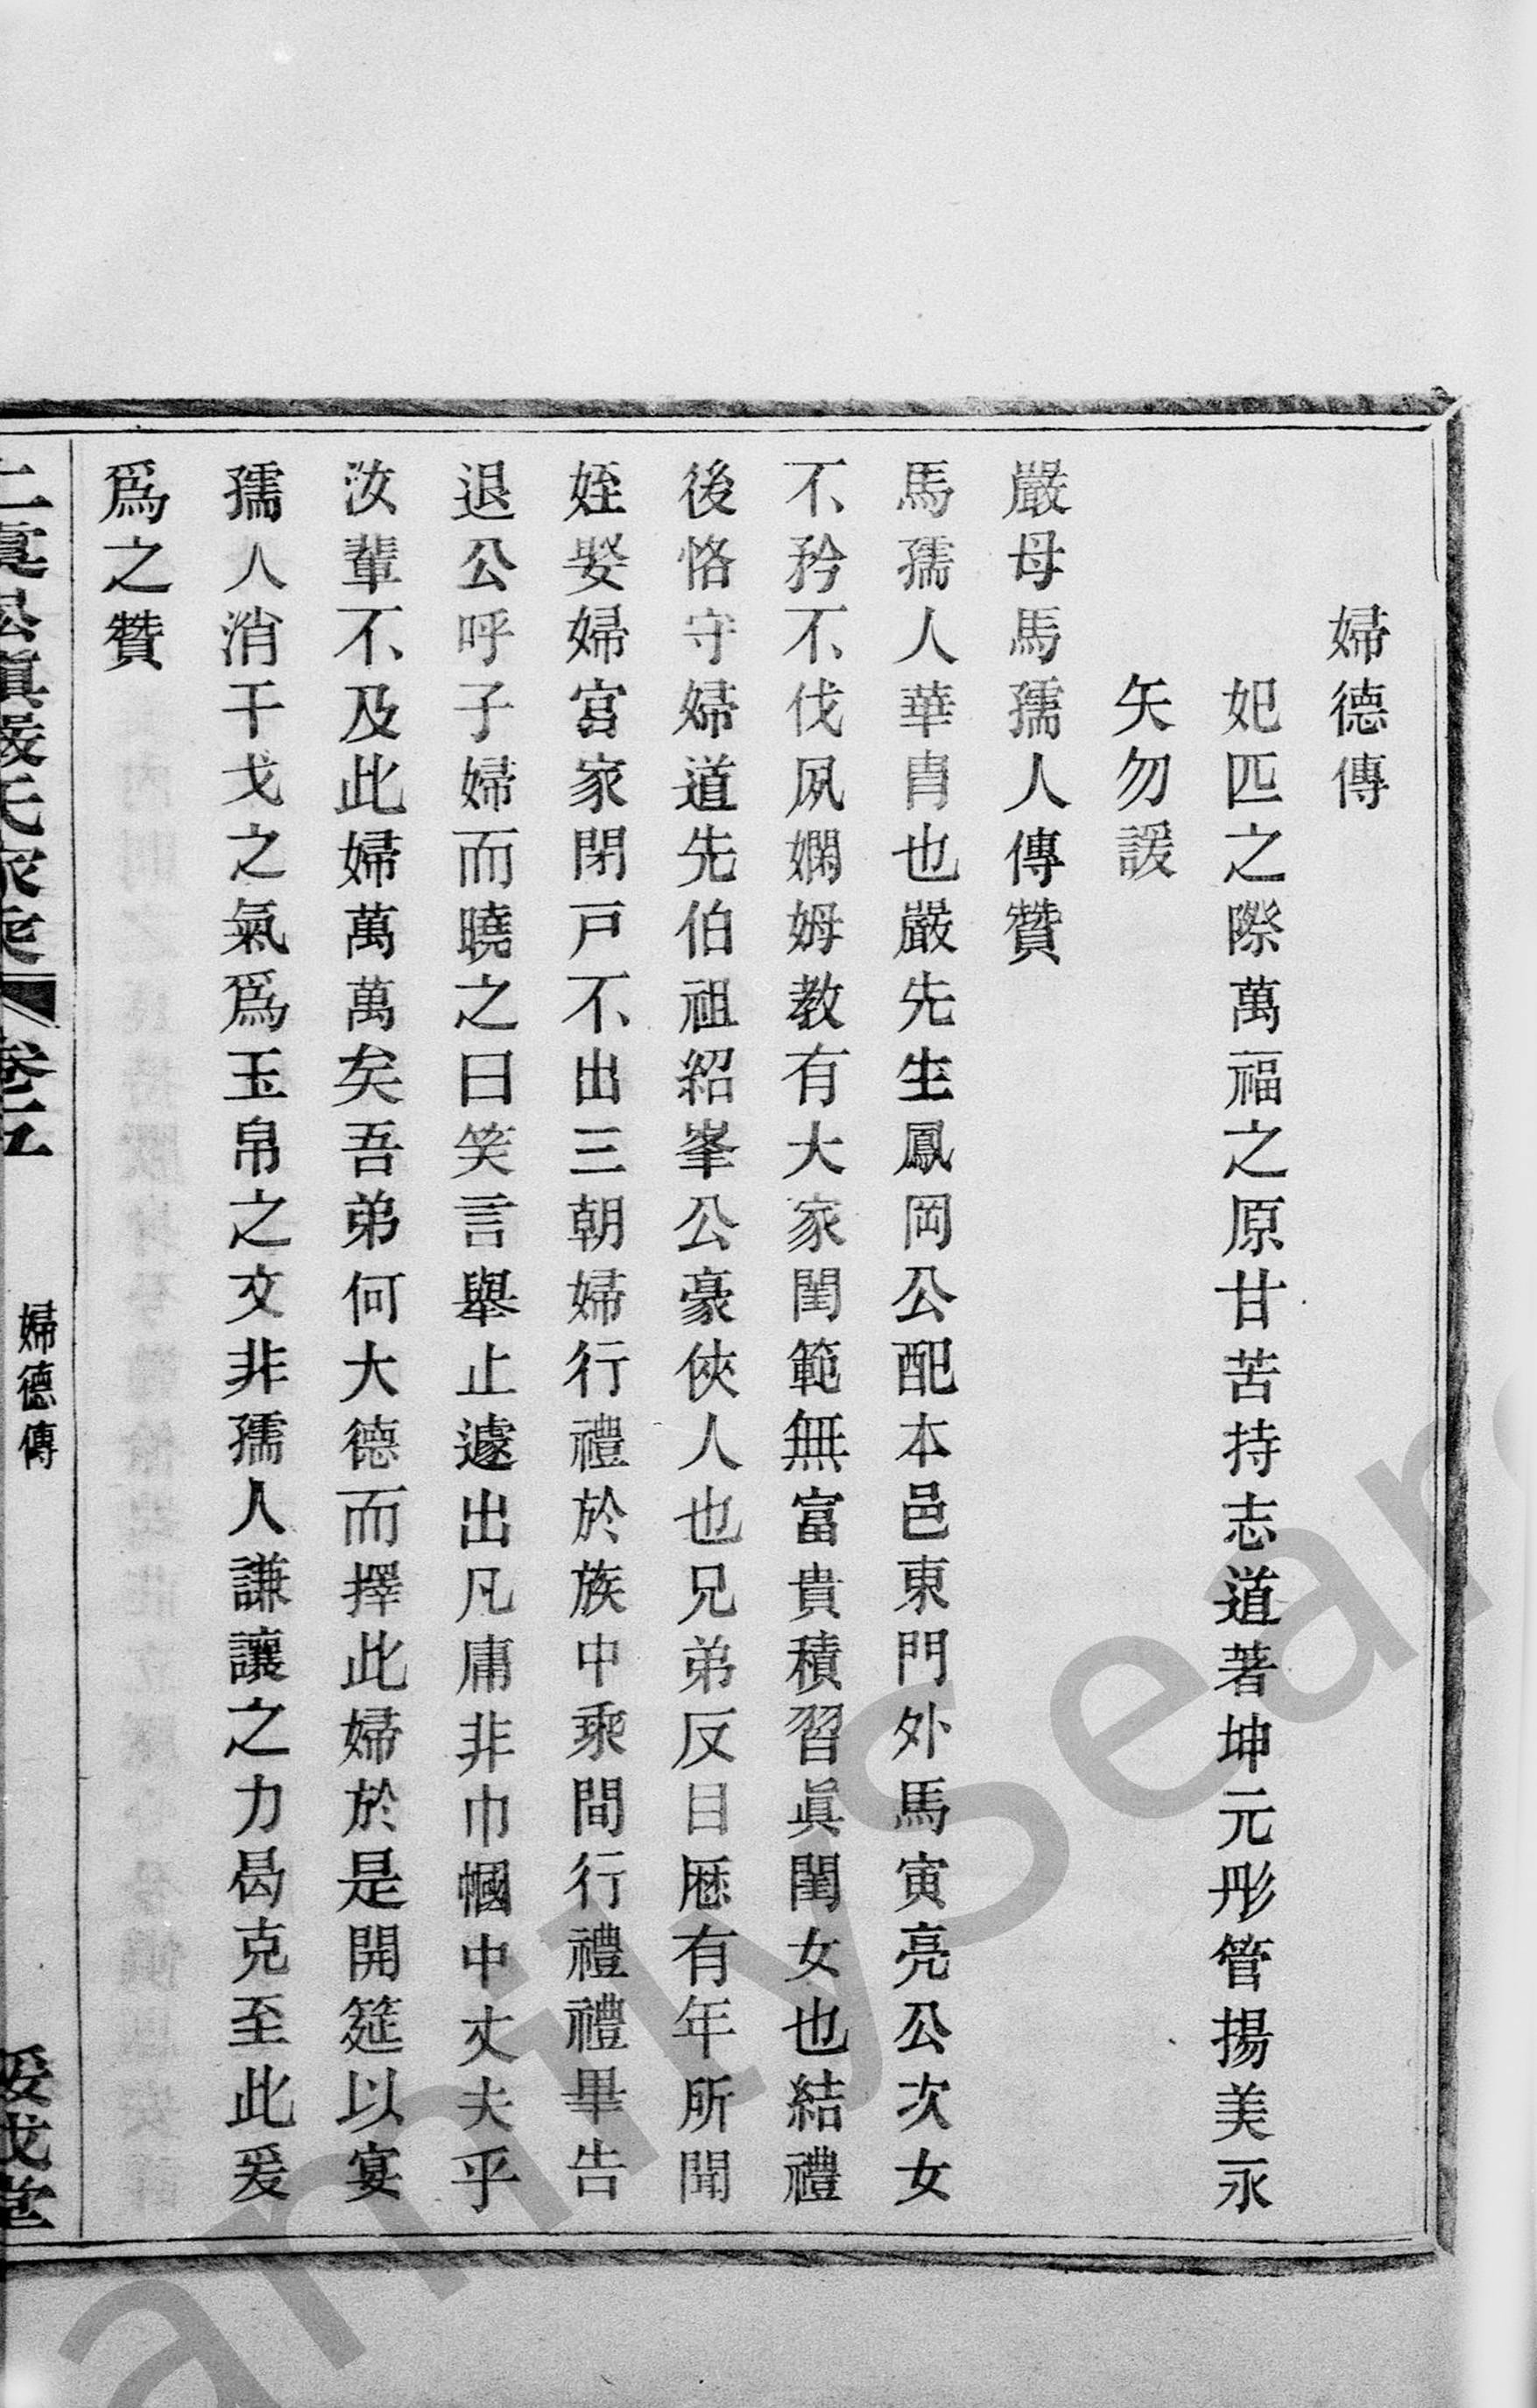 婦德傳
妃匹之際萬福之原甘苦持志道著坤元彤管揚美永
矢勿諼
嚴母馬孺人傳贊
馬孺人華胄也嚴先生鳳岡公配本邑東門外馬寅亮公次女
不矜不伐夙嫻姆教有大家閨範無富貴積習眞閨女也結禮
後恪守婦道先伯祖紹峯公豪俠人也兄弟反目厯有年所聞
姪娶婦宮家閉戸不出三朝婦行禮於族中乘間行禮禮畢告
退公呼子婦而曉之曰笑言舉止遽出凡庸非巾幗中丈夫乎
汝輩不及此婦萬萬矣吾弟何大德而擇此婦於是開筵以宴
孺人消干戈之氣爲玉帛之文非孺人謙讓之力曷克至此爰
爲之贊
婦德傳
amilySear